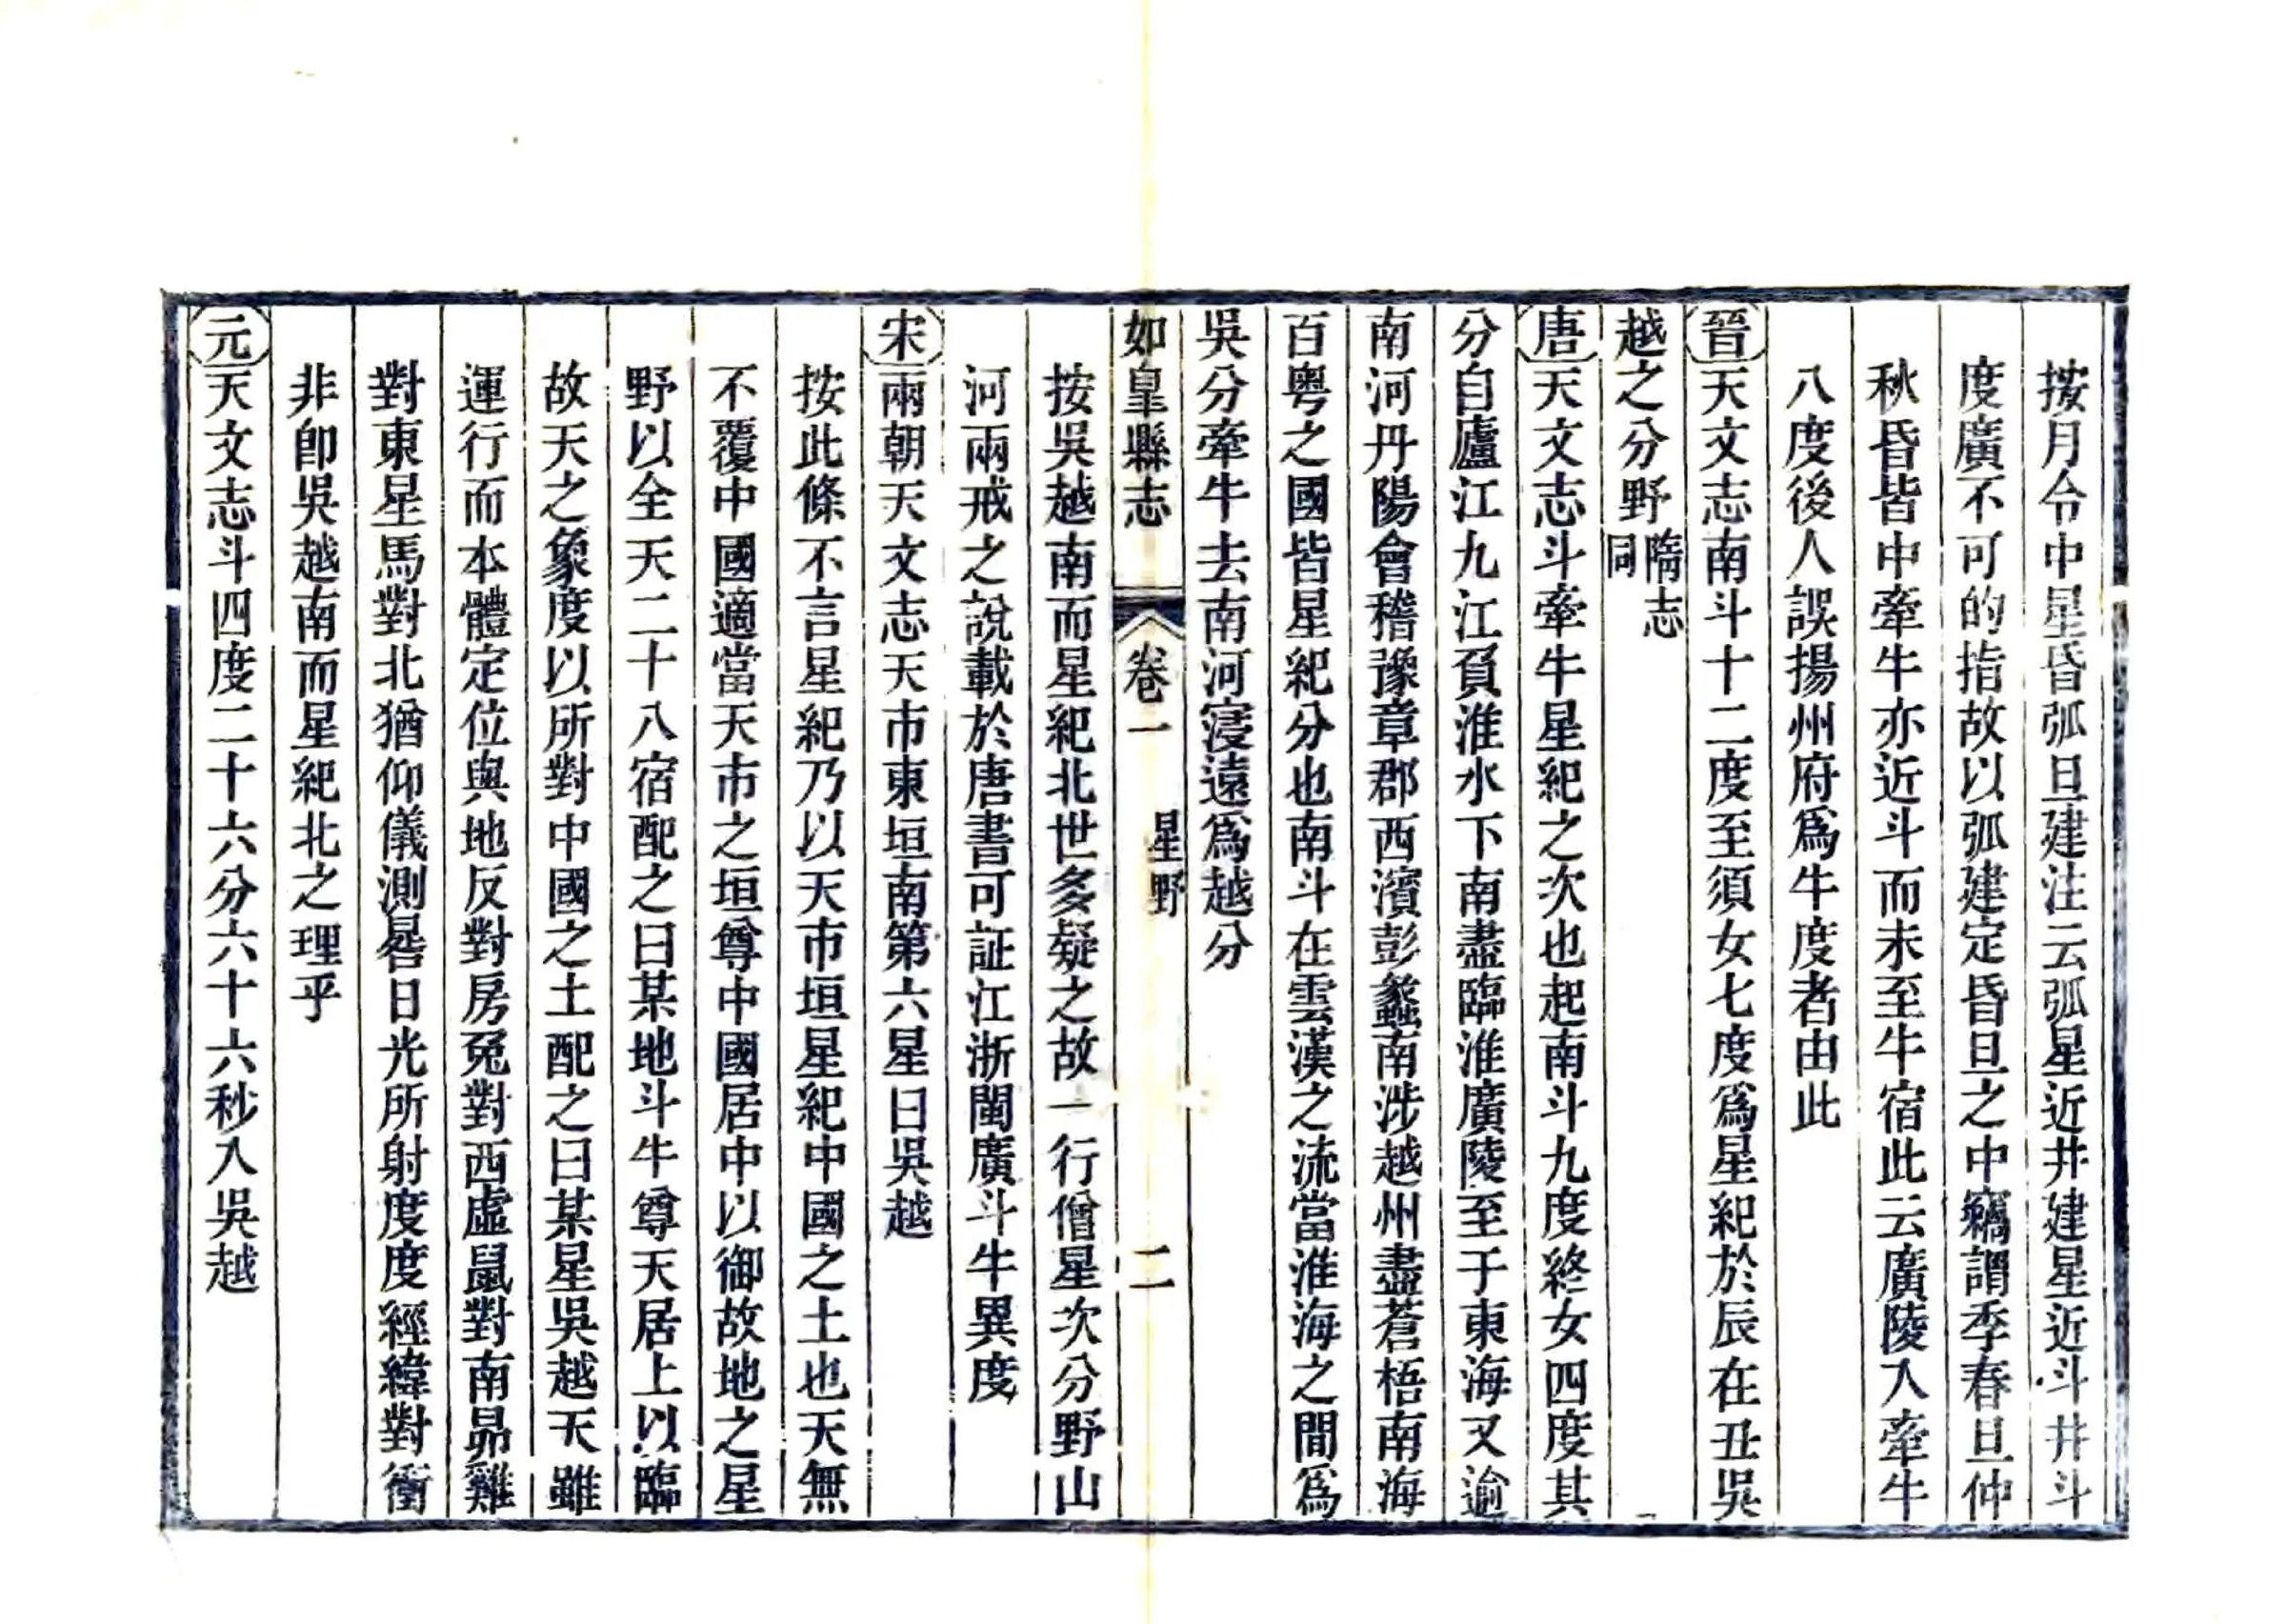 按月令中星昏弧旦建注云弧星近井建星近斗井斗
度廣不可的指故以弧建定昏旦之中竊謂季春旦仲
秋昏皆中牽牛亦近斗而未至牛宿此云廣陵入牽牛
八度後人誤揚州府爲牛度者由此
晉天文志南斗十二度至須女七度爲星紀於辰在丑吳
越之分野隋志同
唐天文志斗牽牛星紀之次也起南斗九度終女四度其
分自廬江九江負淮水下南盡臨淮廣陵至于東海又逾
南河丹陽會稽豫章郡西濱彭蠡南涉越州盡蒼梧南海
百粵之國皆星紀分也南斗在雲漢之流當淮海之間爲
吳分牽牛去南河寖遠爲越分
如皐縣志 卷一 星野 二
按吳越南而星紀北世多疑之故一行僧星次分野山
河兩戒之說載於唐書可証江浙閩廣斗牛異度
宋兩朝天文志天市東垣南第六星曰吳越
按此條不言星紀乃以天市垣星紀中國之土也天無
不覆中國適當天市之垣尊中國居中以御故地之星
野以全天二十八宿配之曰某地斗牛尊天居上以臨
故天之象度以所對中國之土配之曰某星吳越天雖
運行而本體定位與地反對房兔對西虛鼠對南昴雞
對東星馬對北猶仰儀測晷日光所射度度經緯對衝
非卽吳越南而星紀北之理乎
元天文志斗四度二十六分六十六秒入吳越